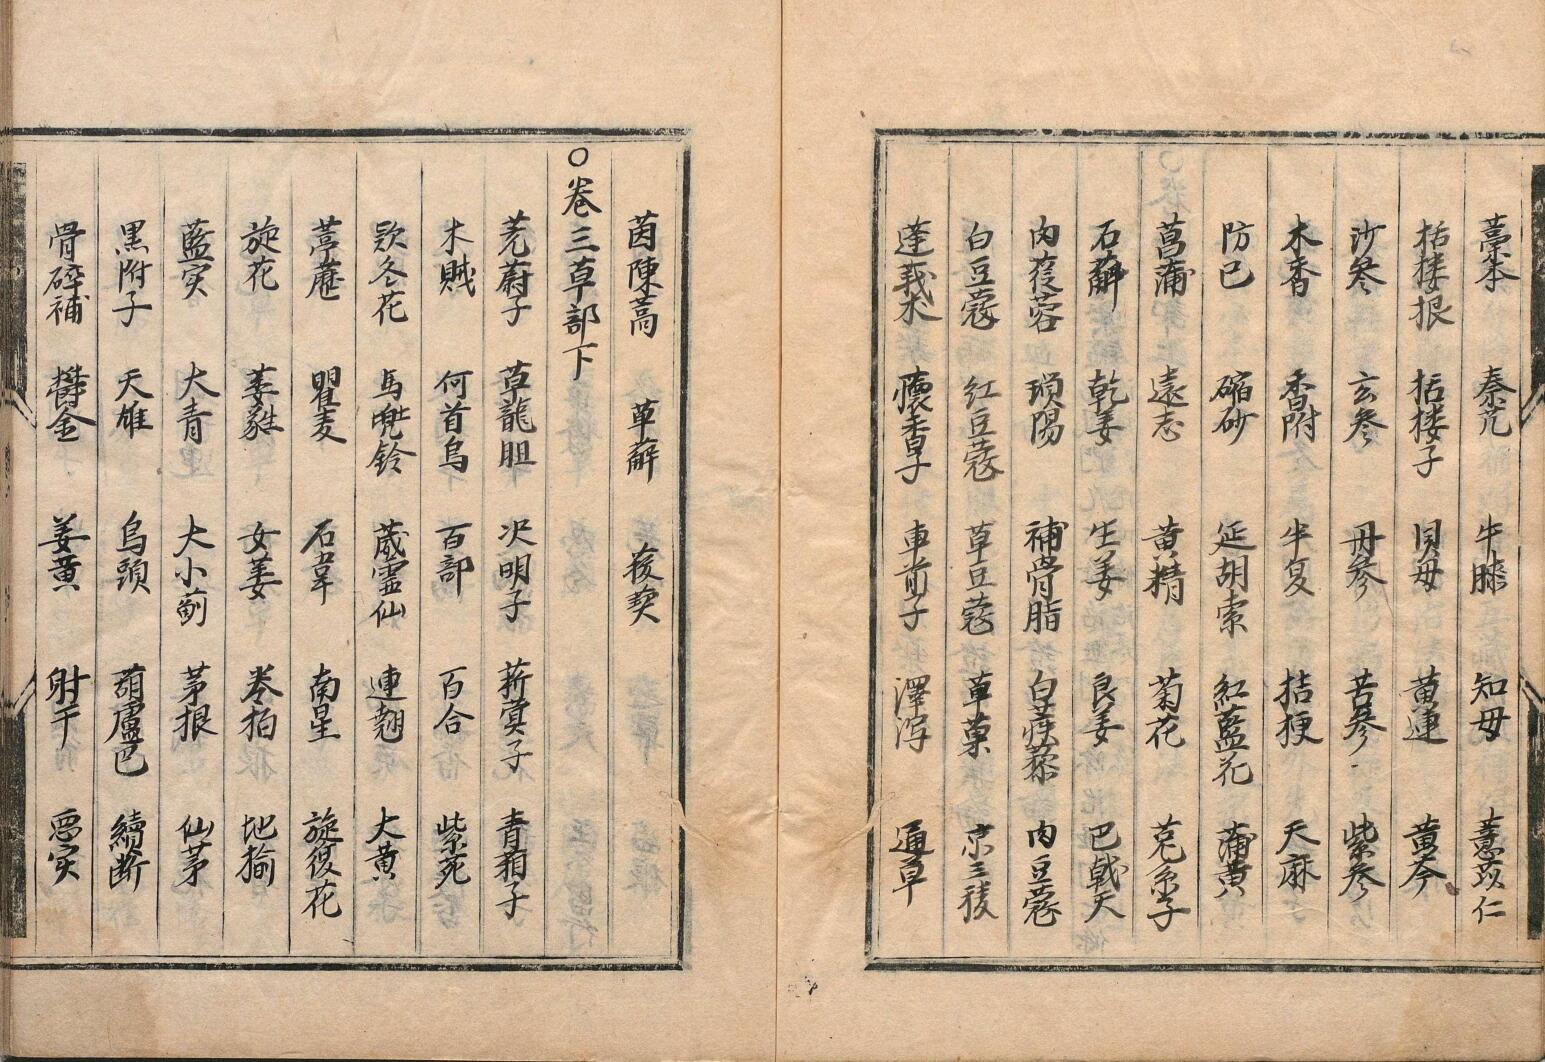 藁本 秦艽 牛膝 知母 薏苡仁
括楼根 括楼子 貝母 黄連 黄芩
沙参 玄参 丹参 苦参 紫参
木香 香附 半夏 桔梗 天麻
防已 縮砂 延胡索 紅藍花 蒲黄
菖蒲 遠志 黄精 菊花 莵糸子
石蘚 乾姜 生姜 良姜 巴戟天
肉蓯蓉 瑣陽 補骨脂 白蒺蔾 肉豆蔲
白豆蔲 紅豆蔲 草豆蔲 草菓 京三稜
蓬莪朮 懐香子 車前子 澤泻 通草
茵陳蒿 萆薢 菝葜
〇卷三草部下
茺蔚子 草龍胆 决明子 菥蓂子 青葙子
木賊 何首烏 百部 百合 紫菀
欵冬花 馬兜鈴 葳霊仙 連翹 大黄
葶藶 瞿麦 石韋 南星 旋復花
旋花 萎蕤 女萎 卷柏 地揄
藍实 大青 大小薊 茅根 仙茅
黒附子 天雄 烏頭 葫蘆巴 續断
骨碎補 欝金 姜黄 射干 悪实